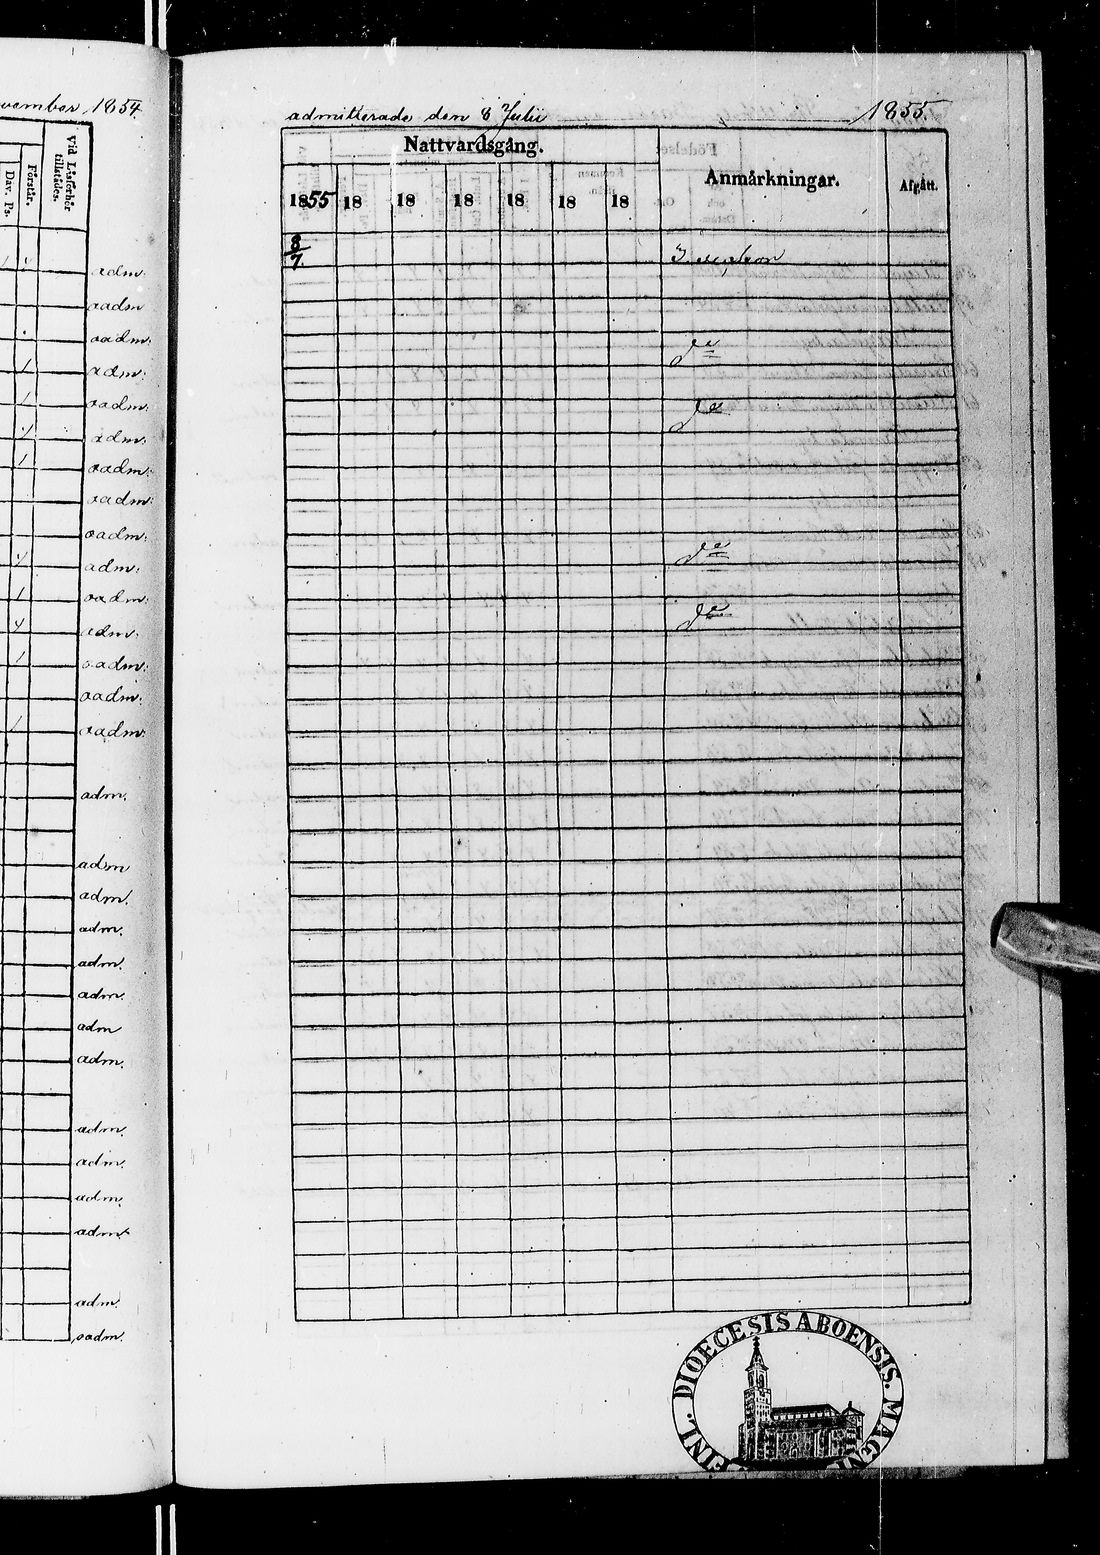 vember 1854
Dav. Ps.
Förstår.
Vid Läsförhör tillstädes.
adm:
oadm
oadm:
adm:
oadm:
adm:
oadm:
oadm:
oadm:
adm:
oadm:
adm:
oadm:
oadm:
oadm:
adm.
adm
adm.
adm.
adm.
adm.
adm
adm.
adm.
adm.
adm.
adm.
adm.
oadm.
admitterade den 8 Julii 1855.
Nattvardsgång.
Anmärkningar.
Afgått.
1855 18 18 18 18 18 18
8/7
do
do
do
do
FINL. DIOECESIS ABOENSIS. MAGNI